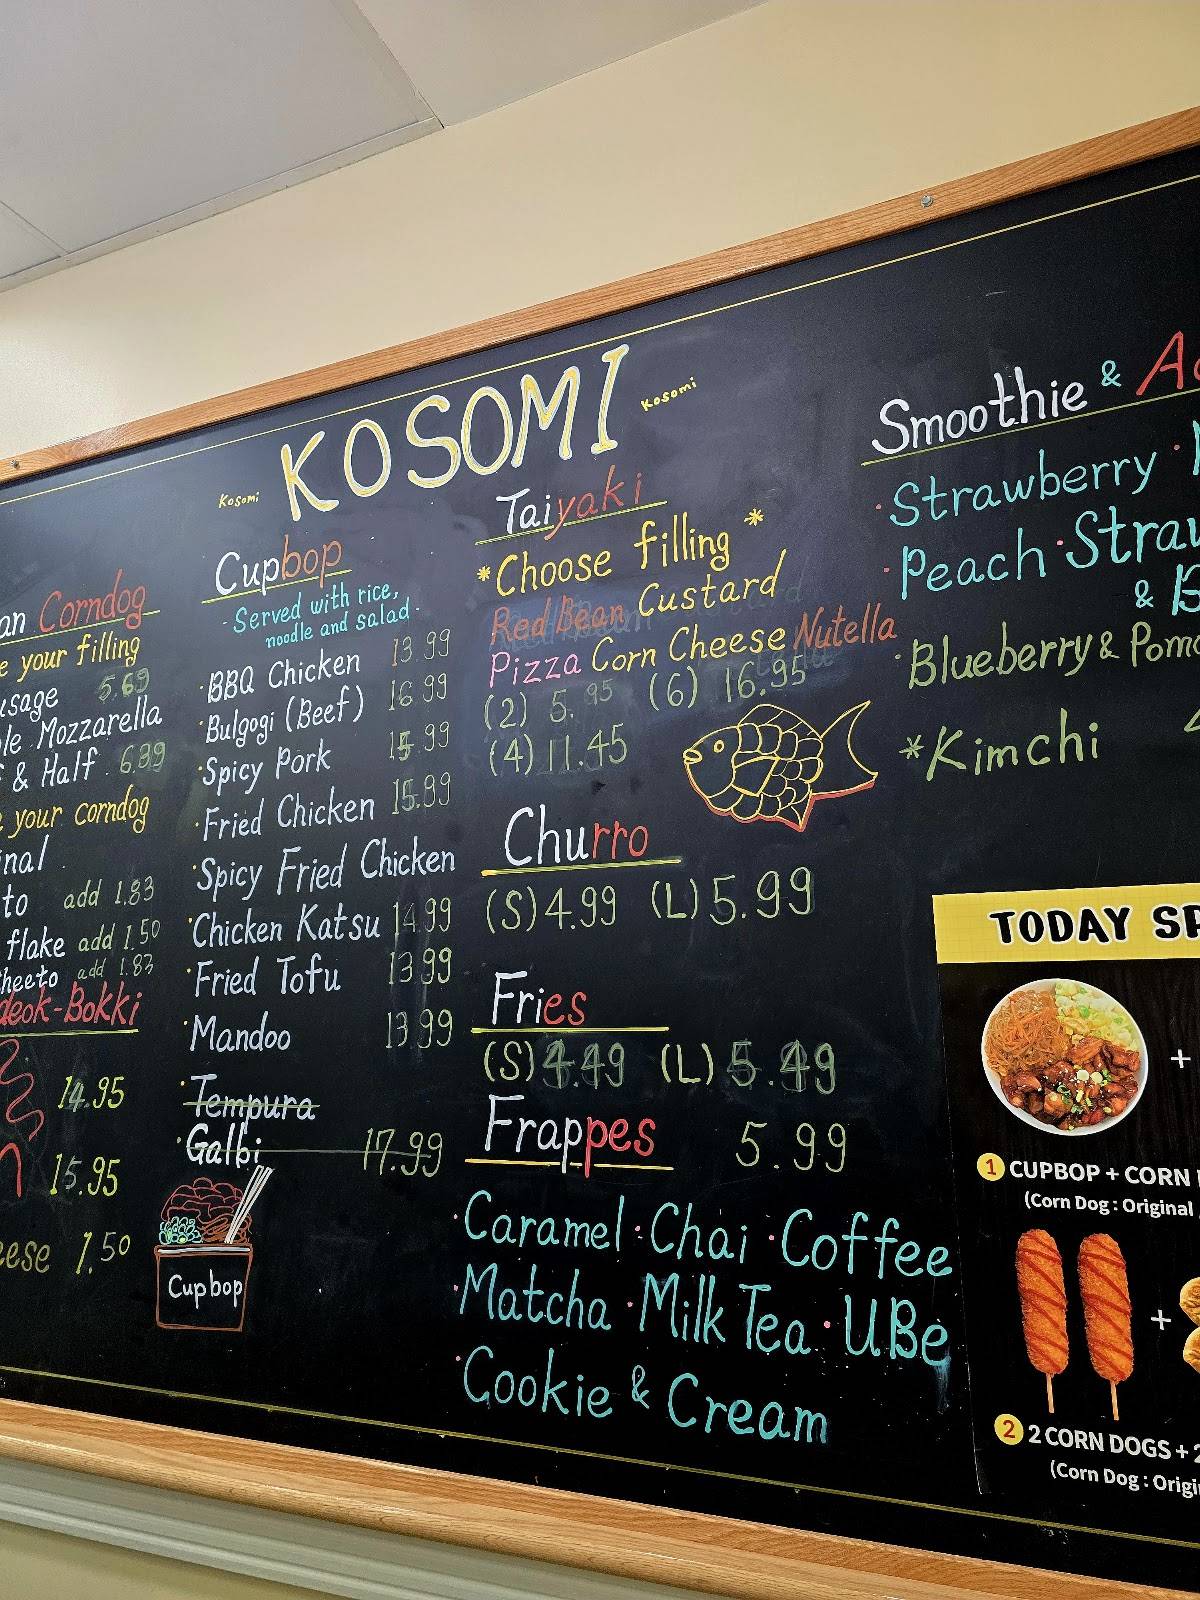 KOSOMI
Kosomi
Kosomi
Corndog
your filling
5.69
Mozzarella
& Half 6.39
your corndog
add 1.83
flake add 1.50
add 1.83
-Bokki
14.95
15.95
1.50
Cupbop
- Served with rice,
noodle and salad -
· BBQ Chicken 13.99
· Bulgogi (Beef) 16.99
· Spicy Pork 15.99
· Fried Chicken 15.99
· Spicy Fried Chicken
· Chicken Katsu 14.99
· Fried Tofu 13.99
· Mandoo 13.99
· Tempura
· Galbi 17.99
Cupbop
Taiyaki
*Choose filling*
Red Bean Custard
Pizza Corn Cheese Nutella
(2) 5.95 (6) 16.95
(4) 11.45
Churro
(S) 4.99 (L) 5.99
Fries
(S) 4.49 (L) 5.49
Frappes 5.99
· Caramel · Chai · Coffee
· Matcha · Milk Tea · UBe
· Cookie & Cream
Smoothie &
· Strawberry ·
· Peach ·
&
· Blueberry &
*Kimchi
TODAY
+
1 CUPBOP + CORN
(Corn Dog : Original
+
2 2 CORN DOGS +
(Corn Dog :